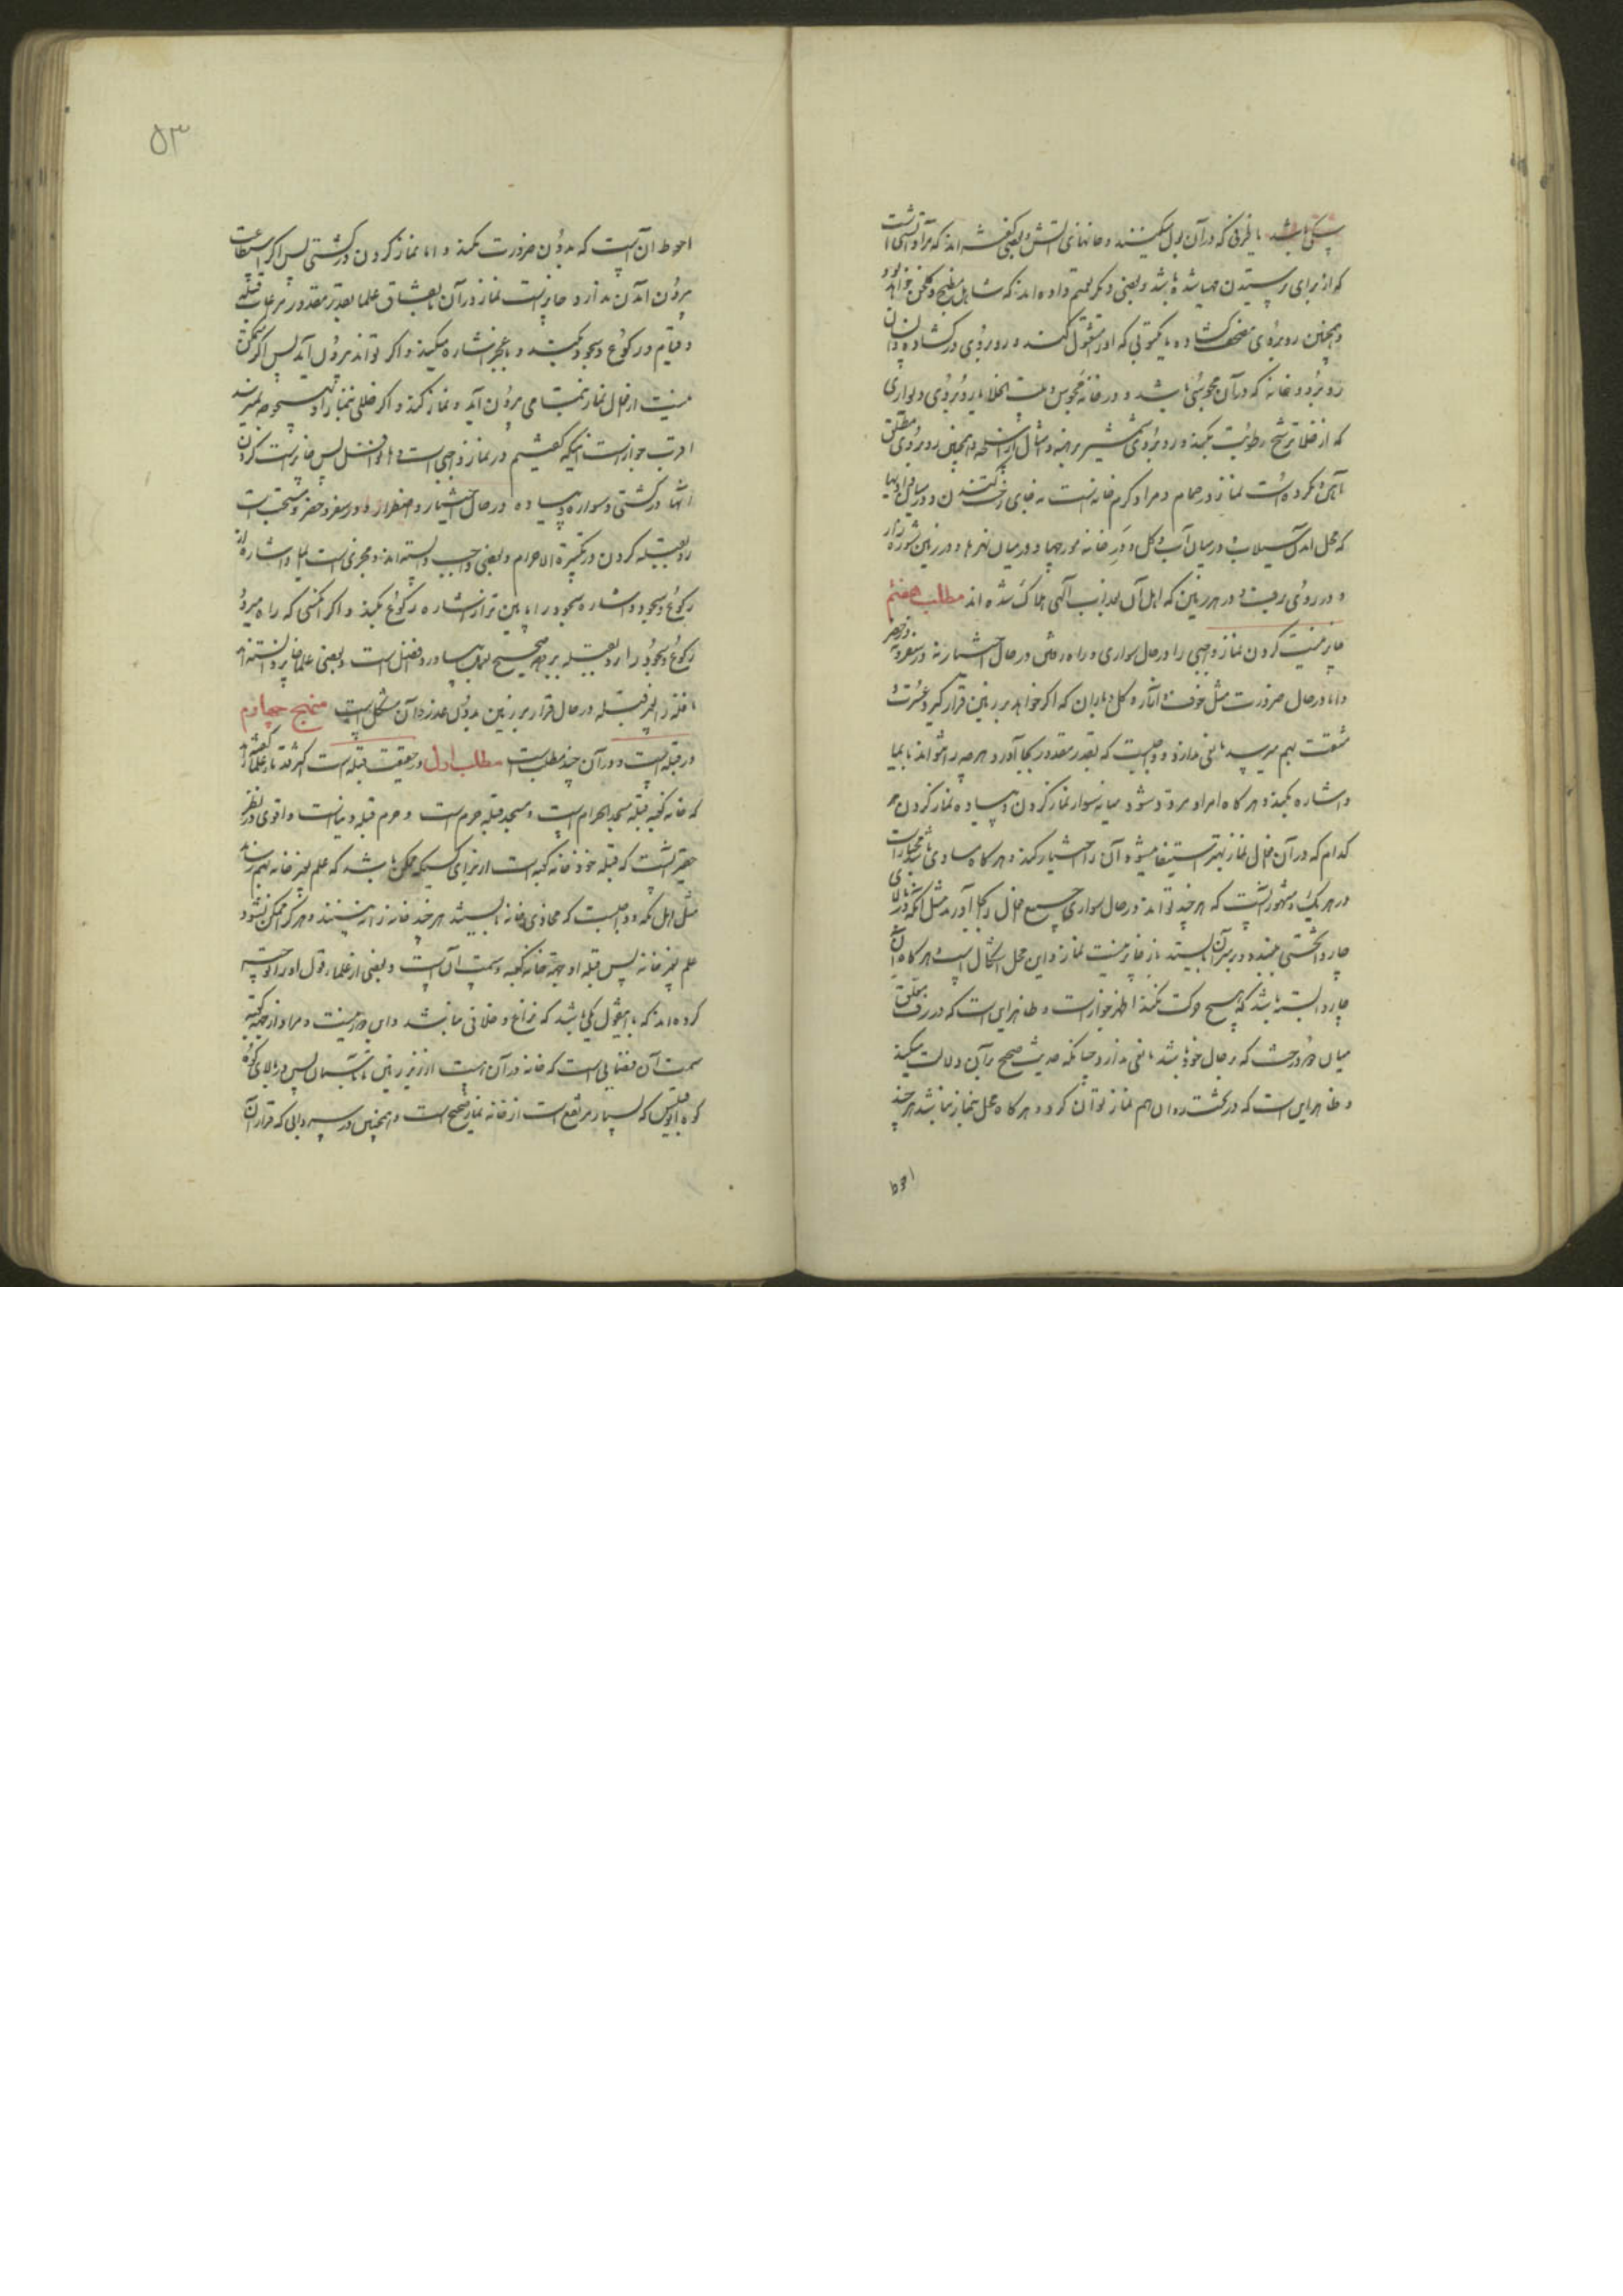 سگی باشد یا ظرفی که در آن بول میکنند و خانهای آتش و بعضی گفته اند که مراد آتشی است
که از برای پرستیدن مهیا شده باشد و بعضی دیگر تعمیم داده اند که شامل مطبخ و گلخن خواهد بود
و همچنین روبروی مصحف گشاده یا مکتوبی که او را مشغول کند و روبروی در گشاده و انسان
روبرو و خانه که در آن مجوسی باشد و در خانه مجوس و بیت الخلا یا روبروی دیواری
که از خلا ترشح رطوبت بکند و روبروی شمشیر برهنه و امثال آن از اسلحه و همچنین روبروی مطلق
آهن و مکروه است نماز در حمام و مراد گرم خانه است نه جای رخت کندن و در میان وادیها
که محل آمدن سیلاب و در میان آب و گل و در خانه مورچها و در میان نهرها و در زمین شوره زار
و در روی برف و در هر زمین که اهل آن بعذاب الهی هلاک شده اند مطلب هفتم
جایز نیست کردن نماز واجبی را در حال سواری و راه رفتن در حال اختیار نه در سفر و نه در حضر
و اما در حال ضرورت مثل خوف و آثار و گل و باران که اگر خواهد بر زمین قرار گیرد عسرت و
مشقت بهم میرسد مانعی ندارد و واجبست که بقدر مقدور بجا آورد و هر چه را نتواند بایما
و اشاره بکند و هر گاه امر او مردد شود میانه سوار نماز کردن و پیاده نماز کردن هر
کدام که در آن افعال نماز بهتر استیفا میشود آن را اختیار کند و هر گاه مساوی باشد مختار است
در هر یک و مشهور آنست که هر چند تواند در حال سواری جمیع افعال را بجا آورد مثل آنکه در بالای
چاروا تختی ببندد و بر سر آن بایستد باز جایز نیست نماز و این محل اشکال است و هر گاه آن
چاروا بسته باشد که هیچ حرکت نکند اظهر جواز است و ظاهر این است که در رف معلق
میان دو درخت که بر حال خود باشد مانعی ندارد چنانکه حدیث صحیح بر آن دلالت میکند
و ظاهر این است که در تخت روان هم نماز توان کرد و هر گاه مخل بنماز نباشد هر چند
احوط
۵۳
احوط آن است که بدون ضرورت نکند و اما نماز کردن در کشتی پس اگر استطاعت
بیرون آمدن ندارد جایز است نماز در آن باتفاق علما بقدر مقدور مراعات قبله
و قیام و رکوع و سجود کند و با عجز اشاره میکند و اگر تواند بیرون آمد پس اگر متمکن
نیست از افعال نماز بتمامی بیرون آید و نماز کند و اگر خللی بنماز او بهیچوجه نمیرسد
اقرب جواز است اینکه گفتیم در نماز واجبی است و اما نوافل پس جایز است کردن
آنها در کشتی و سواره و پیاده در حال اختیار و اضطرار و در سفر و حضر و مستحب است
رو بقبله کردن در تکبیرة الاحرام و بعضی واجب دانسته اند و مجزی است ایما و اشاره از
رکوع و سجود و اشاره سجود را پایین تر از اشاره رکوع بکند و اگر کسی که راه میرود
رکوع و سجود را رو بقبله بر وجه صحیح بعمل بیاورد افضل است و بعضی علما جایز دانسته اند
نافله را بغیر قبله در حال قرار بر زمین بدون عذر و آن مشکل است منهج چهارم
در قبله است و در آن چند مطلب است مطلب اول در حقیقت قبله است اکثر قدما از علما گفته اند
که خانه کعبه قبله مسجد الحرام است و مسجد قبله حرم است و حرم قبله دنیاست و اقوی در نظر
حقیر آنست که قبله خود خانه کعبه است از برای کسی که ممکن باشد که علم بعین خانه بهم رساند
مثل اهل مکه و واجبست که محاذی خانه بایستند هر چند خانه را نه بینند و هر گز ممکن نشود
علم بعین خانه پس قبله او جهة خانه کعبه و سمت آن است و بعضی از علما قول اول را توجیه
کرده اند که با این قول یکی باشد که نزاع و خلافی نباشد و این دور نیست و مراد از جهة کعبه
سمت آن فضایی است که خانه در آن است از زیر زمین تا بآسمان پس در بالای کوه
کوه ابو قبیس که بسیار مرتفع است از خانه نماز صحیح است و همچنین در سردابی که قرار آن